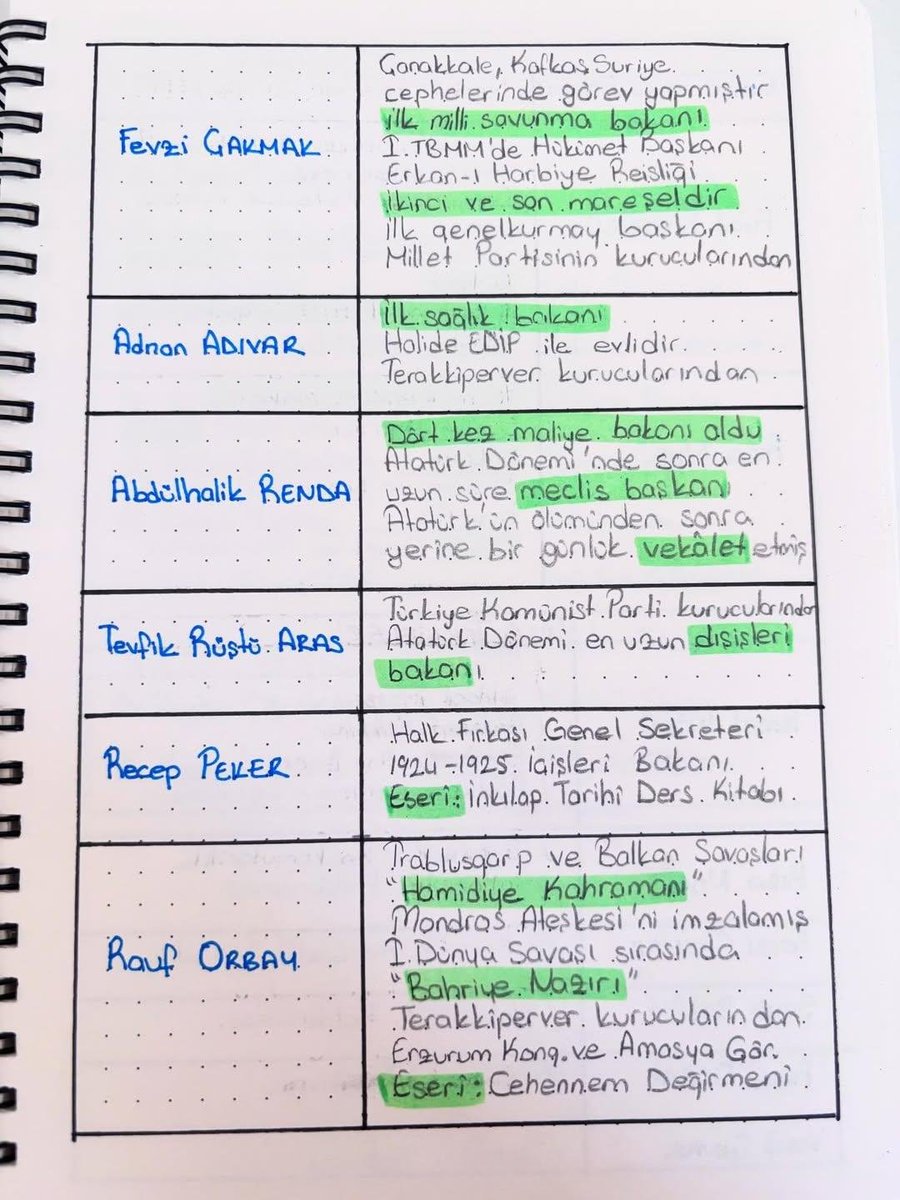 Fevzi ÇAKMAK
Çanakkale, Kafkas Suriye
cephelerinde görev yapmıştır
ilk milli savunma bakanı
I. TBMM'de Hükimet Başkanı
Erkan-ı Harbiye Reisliği
ikinci ve son mareşeldir
ilk genelkurmay başkanı
Millet Partisinin kurucularından
Adnan ADIVAR
ilk sağlık bakanı
Halide EDİP ile evlidir.
Terakkiperver kurucularından
Abdülhalik RENDA
Dört kez maliye bakanı oldu
Atatürk Dönemi'nde sonra en
uzun süre meclis başkanı
Atatürk'ün ölümünden sonra
yerine bir günlük vekâlet etmiş
Tevfik Rüştü ARAS
Türkiye Komünist Parti kurucularından
Atatürk Dönemi en uzun dışişleri
bakanı
Recep PEKER
Halk Fırkası Genel Sekreteri
1924-1925 İçişleri Bakanı
Eseri: İnkılap Tarihi Ders Kitabı
Rauf ORBAY
Trablusgarp ve Balkan Savaşları
"Hamidiye Kahramanı"
Mondros Ateşkesi'ni imzalamış
I. Dünya Savaşı sırasında
"Bahriye Nazırı"
Terakkiperver kurucularından
Erzurum Kong. ve Amasya Gör.
Eseri: Cehennem Değirmeni